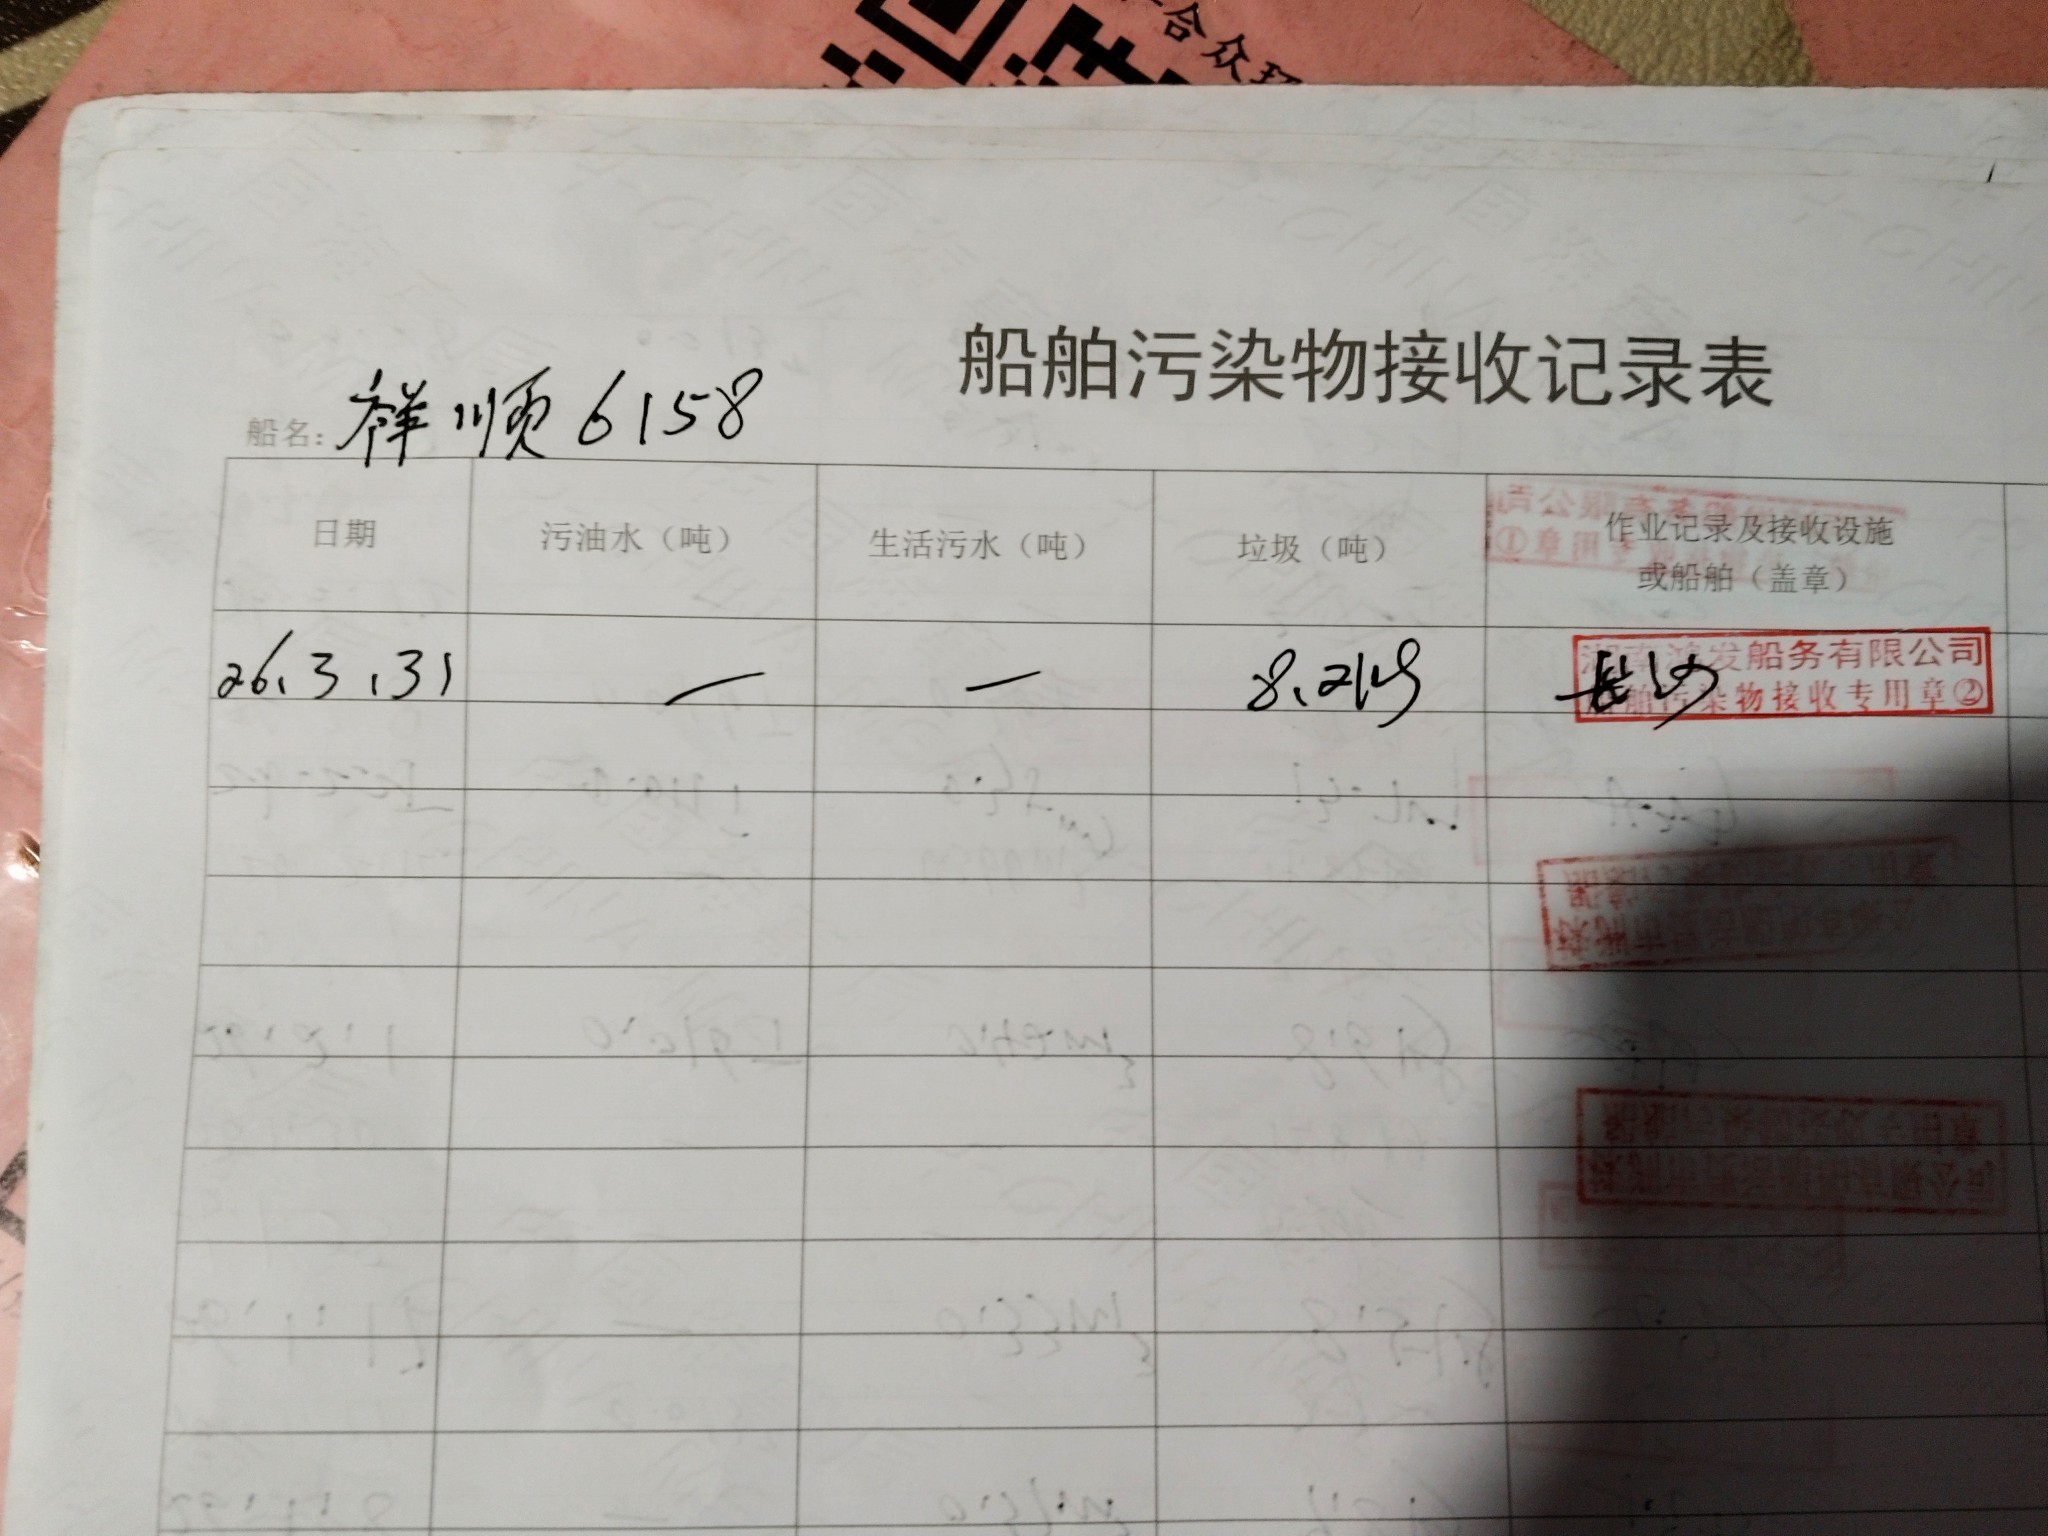 合众环
船舶污染物接收记录表
船名: 祥顺6158
日期 污油水（吨） 生活污水（吨） 垃圾（吨） 作业记录及接收设施
或船舶（盖章）
26.3.31 — — 长沙
湖南鸿发船务有限公司
船舶污染物接收专用章②